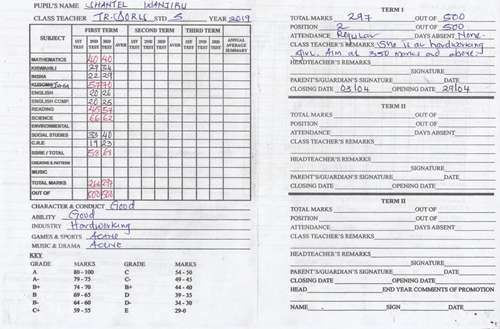 PUPIL'S NAME SHANTEL WANJIRU
CLASS TEACHER TR. DORIS STD 5 YEAR 2019
SUBJECT FIRST TERM SECOND TERM THIRD TERM ANNUAL AVERAGE SUMMARY
1ST TEST 2ND TEST 3RD TEST AVER 1ST TEST 2ND TEST 3RD TEST AVER 1ST TEST 2ND TEST 3RD TEST AVER
MATHEMATICS 40 40
KISWAHILI 29 34
INSHA 22 29
57 70
ENGLISH 20 26
ENGLISH COMP. 20 25
READING 40 57
SCIENCE 66 62
ENVIRONMENTAL
SOCIAL STUDIES 33 40
C.R.E 19 23
SSRE / TOTAL 58 67
CREATIVE & PATTERN
MUSIC
TOTAL MARKS 297
OUT OF 500 500
CHARACTER & CONDUCT Good
ABILITY Good
INDUSTRY Hardworking
GAMES & SPORTS Active
MUSIC & DRAMA Active
KEY
GRADE MARKS GRADE MARKS
A 80 - 100 C 54 - 50
A- 79 - 75 C- 49 - 45
B+ 74 - 70 B+ 44 - 40
B 69 - 65 D 39 - 35
B- 64 - 60 D- 34 - 30
C+ 59 - 55 E 29-0
TERM I
TOTAL MARKS 297 OUT OF 500
POSITION 2 OUT OF 500
ATTENDANCE Regular DAYS ABSENT None.
CLASS TEACHER'S REMARKS She is a hardworking
girl. Aim at 350 marks and above.
HEADTEACHER'S REMARKS
SIGNATURE
PARENT'S/GUARDIAN'S SIGNATURE DATE
CLOSING DATE 03/04 OPENING DATE 29/04
TERM II
TOTAL MARKS OUT OF
POSITION OUT OF
ATTENDANCE DAYS ABSENT
CLASS TEACHER'S REMARKS
HEADTEACHER'S REMARKS
SIGNATURE
PARENT'S/GUARDIAN'S SIGNATURE DATE
CLOSING DATE OPENING DATE
TERM II
TOTAL MARKS OUT OF
POSITION OUT OF
ATTENDANCE DAYS ABSENT
CLASS TEACHER'S REMARKS
HEADTEACHER'S REMARKS
SIGNATURE
PARENT'S/GUARDIAN'S SIGNATURE DATE
CLOSING DATE OPENING DATE
HEAD END YEAR COMMENTS OF PROMOTION
NAME SIGN DATE